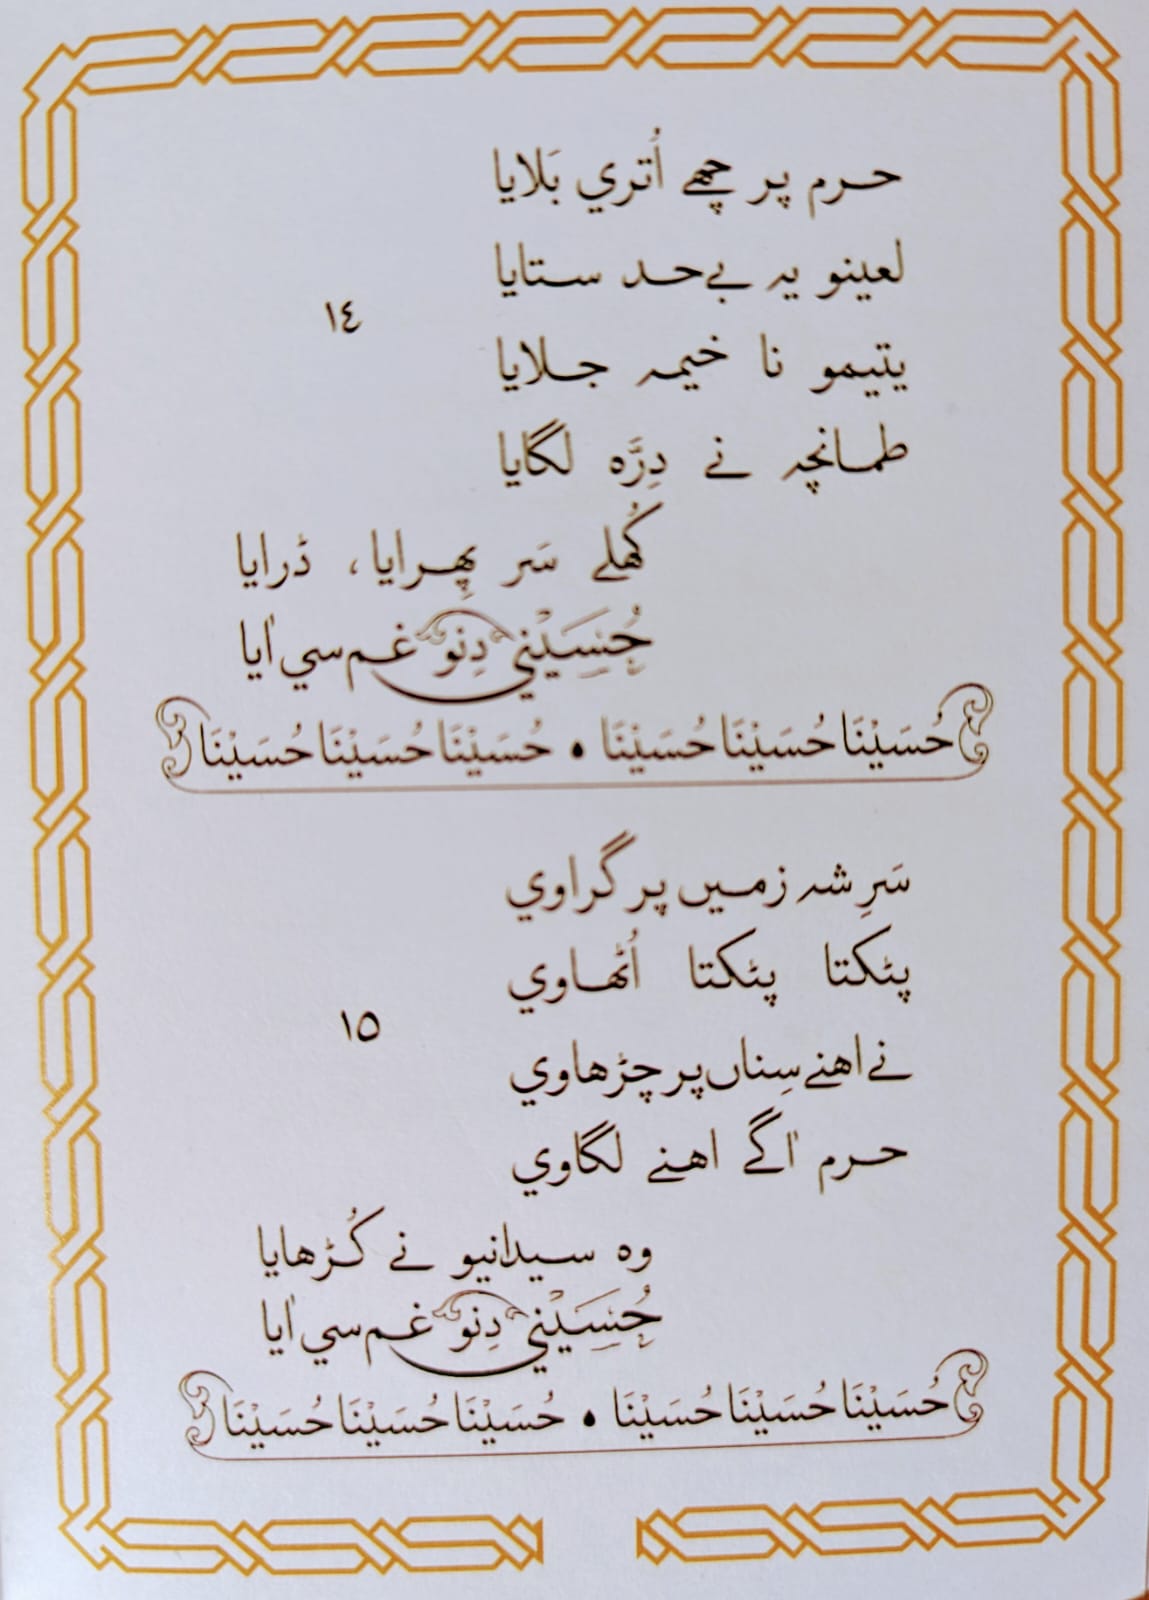 حرم پر چھے اُتري بَلايا
لعينو يہ بےحد ستايا
١٤
يتيمو نا خيمہ جلايا
طمانچہ نے دِرَّه لگايا
كُھلے سَر پِھرايا، ڈرايا
حُسَيْني دِنو غم سي اٰيا
حُسَيْنَا حُسَيْنَا حُسَيْنَا • حُسَيْنَا حُسَيْنَا حُسَيْنَا
سَرِ شہ زميں پر گراوي
پٹكتا پٹكتا اُٹھاوي
١٥
نے اهنے سِناں پر چڑهاوي
حرم اٰگے اهنے لگاوي
وه سيدانيو نے كُڑهايا
حُسَيْني دِنو غم سي اٰيا
حُسَيْنَا حُسَيْنَا حُسَيْنَا • حُسَيْنَا حُسَيْنَا حُسَيْنَا